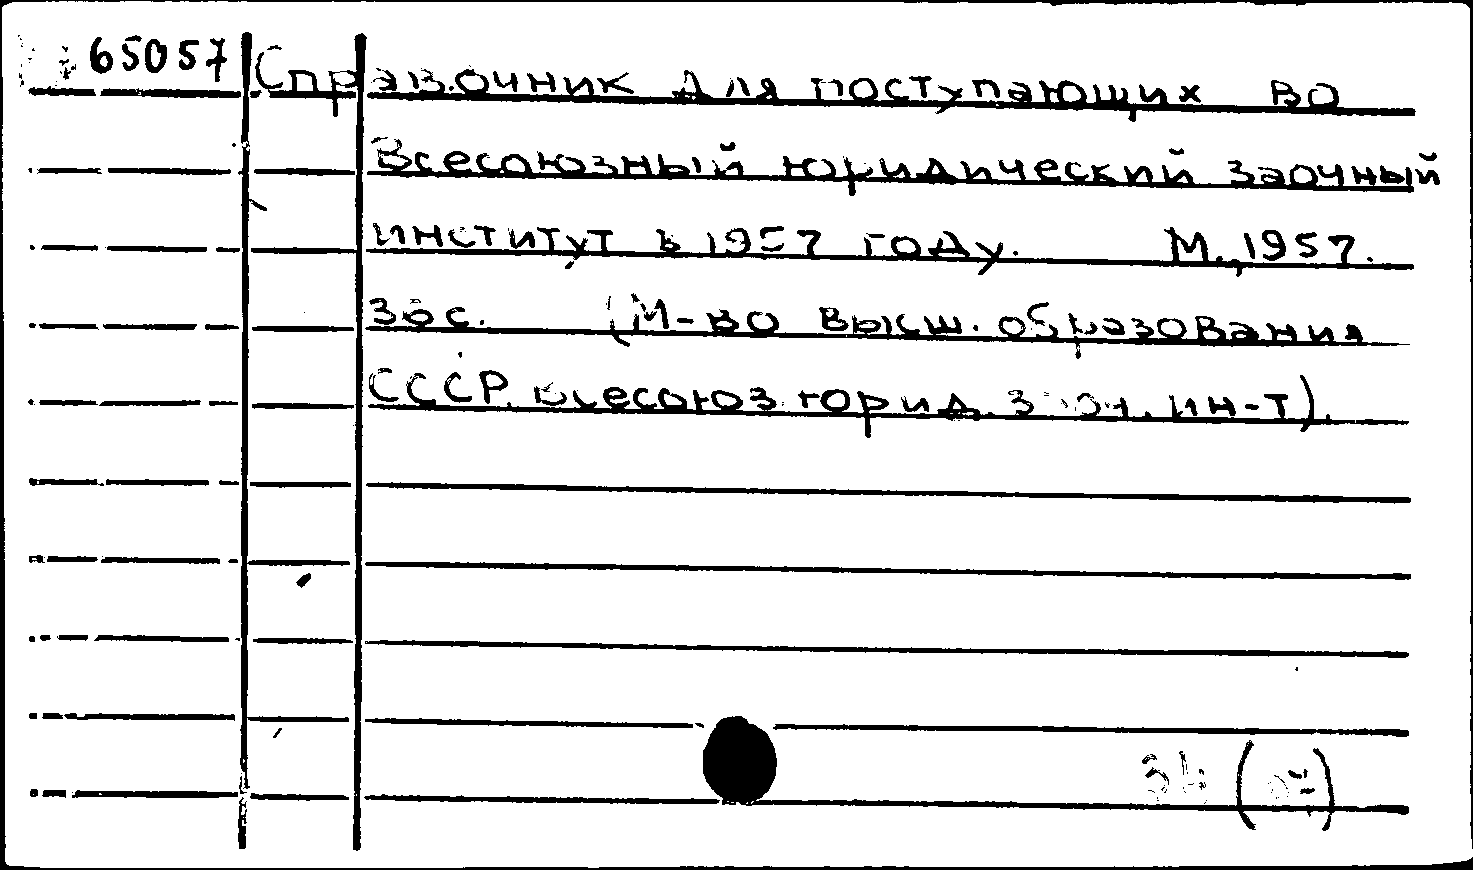 65057 Справочник для поступающих во
Всесоюзный юридический заочный
институт в 1957 году. М., 1957.
36 с. (М-во высш. образования
СССР. Всесоюз юрид. заоч. ин-т).
34